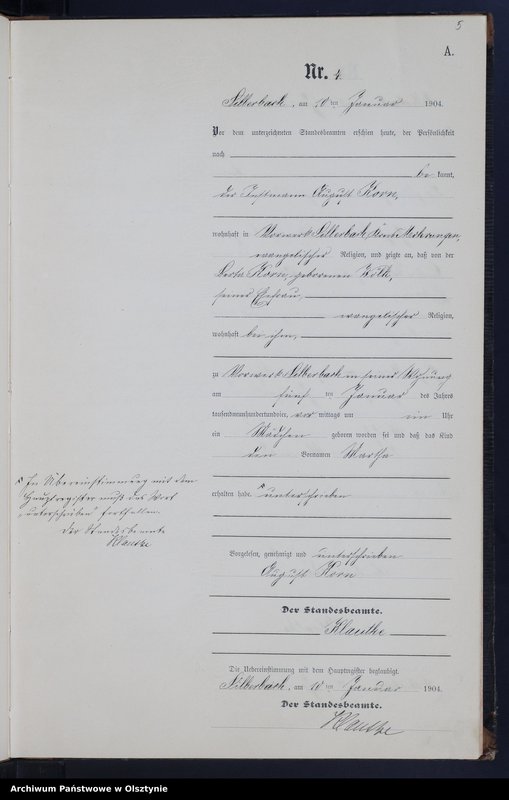 5
A.
Nr. 4.
Silberbach, am 10 ten Januar 1904.
Vor dem unterzeichneten Standesbeamten erschien heute, der Persönlichkeit
nach
be kannt,
der Instmann August Korn,
wohnhaft in Vorwerk Silberbach, Kreis Mohrungen,
evangelischer Religion, und zeigte an, daß von der
Korn, geborenen
seiner Ehefrau,
evangelischer Religion,
wohnhaft bei ihm,
zu Vorwerk Silberbach in seiner Wohnung
am fünf ten Januar des Jahres
tausendneunhundertundvier, vor mittags um ein Uhr
ein Mädchen geboren worden sei und daß das Kind
den Vornamen Martha
erhalten habe. unterschrieben
In Übereinstimmung mit dem
Hauptregister muß das Wort
„unterschrieben" fortfallen.
Der Standesbeamte
Klautke
Vorgelesen, genehmigt und unterschrieben
August Korn
Der Standesbeamte.
Klautke
Die Uebereinstimmung mit dem Hauptregister beglaubigt.
Silberbach, am 10 ten Januar 1904.
Der Standesbeamte.
Klautke
Archiwum Państwowe w Olsztynie